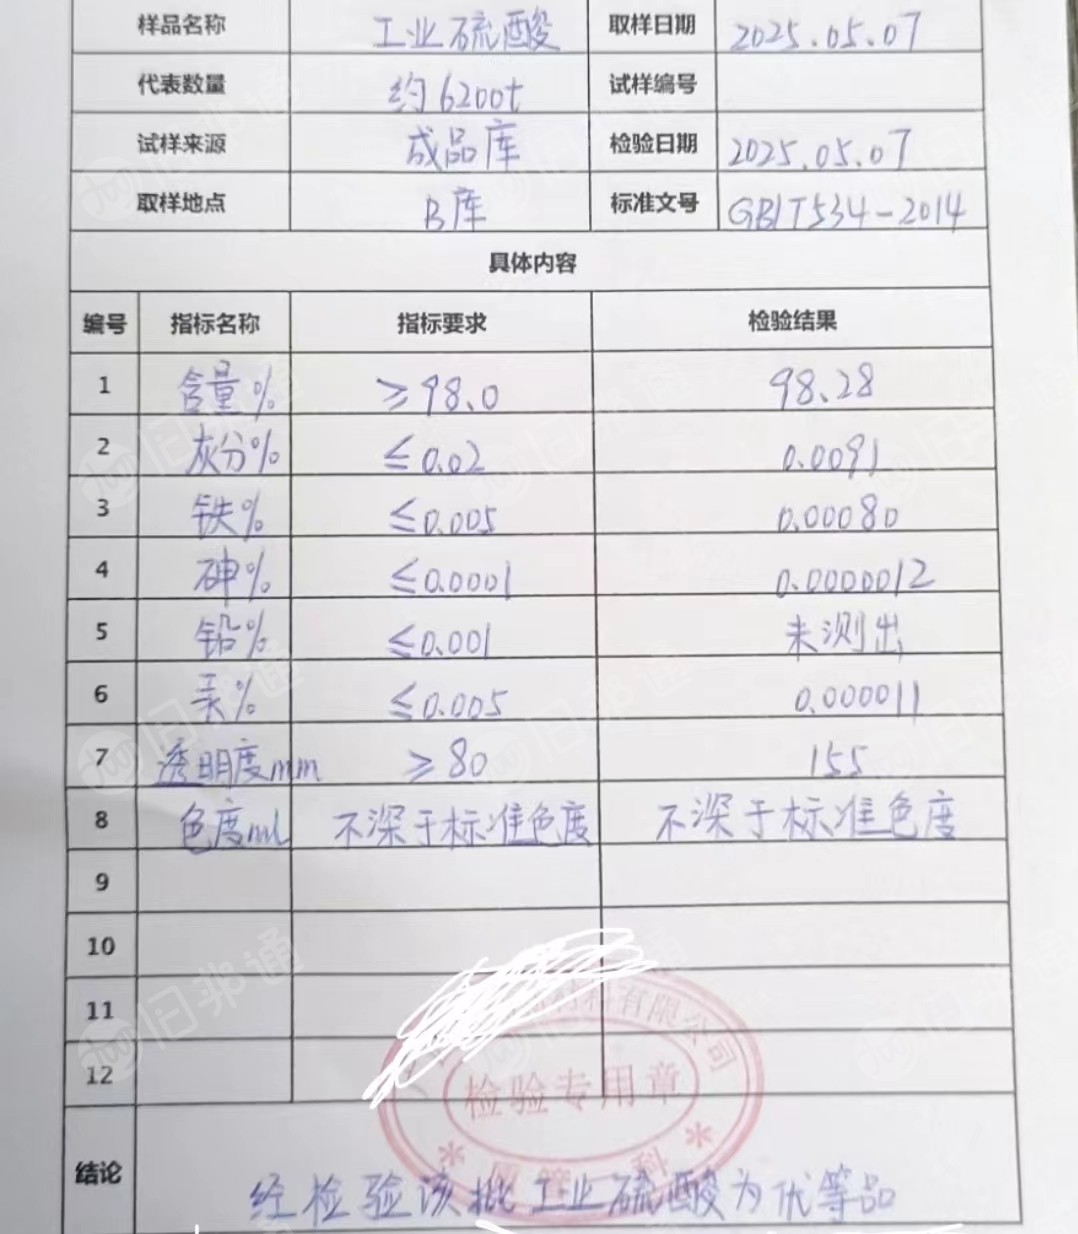 样品名称 工业硫酸 取样日期 2025.05.07
代表数量 约6200t 试样编号
试样来源 成品库 检验日期 2025.05.07
取样地点 B库 标准文号 GB/T534-2014
具体内容
编号 指标名称 指标要求 检验结果
1 含量% ≥98.0 98.28
2 灰分% ≤0.02 0.0091
3 铁% ≤0.005 0.00080
4 砷% ≤0.0001 0.0000012
5 铅% ≤0.001 未测出
6 汞% ≤0.005 0.000011
7 透明度mm ≥80 155
8 色度ml 不深于标准色度 不深于标准色度
9
10
11
12
材料有限公司
检验专用章
结论 经检验该批工业硫酸为优等品
日邦通